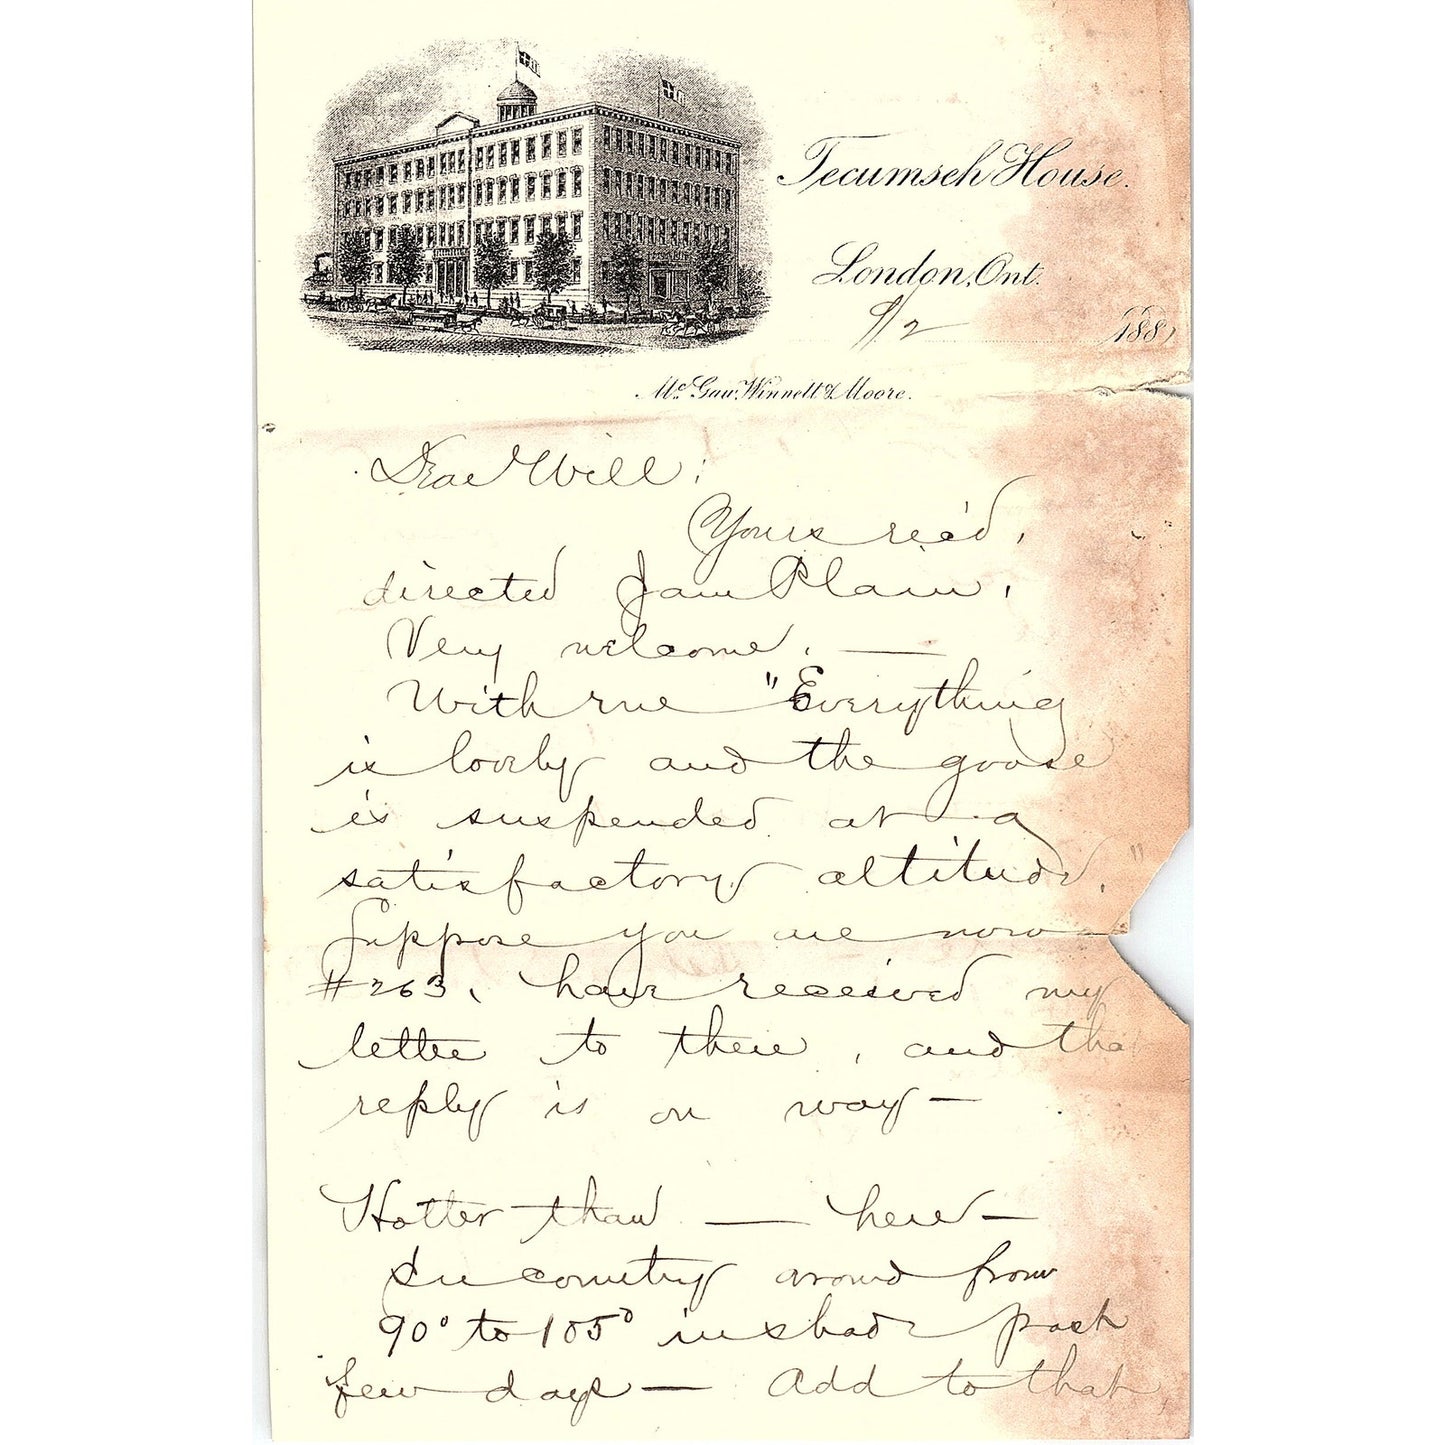 Tecumseh House.
London, Ont.
9/2 1881
McGaw, Winnett & Moore.
Dear Will:
Yours rec'd,
directed Jam Plain,
Very welcome. —
With me "Everything
is lovely and the goose
is suspended at a
satisfactory altitude."
Suppose you are now
#263, have received my
letter to there, and tha
reply is on way —
Hotter than — here —
In country around from
90° to 105° in shade past
few days — Add to that,